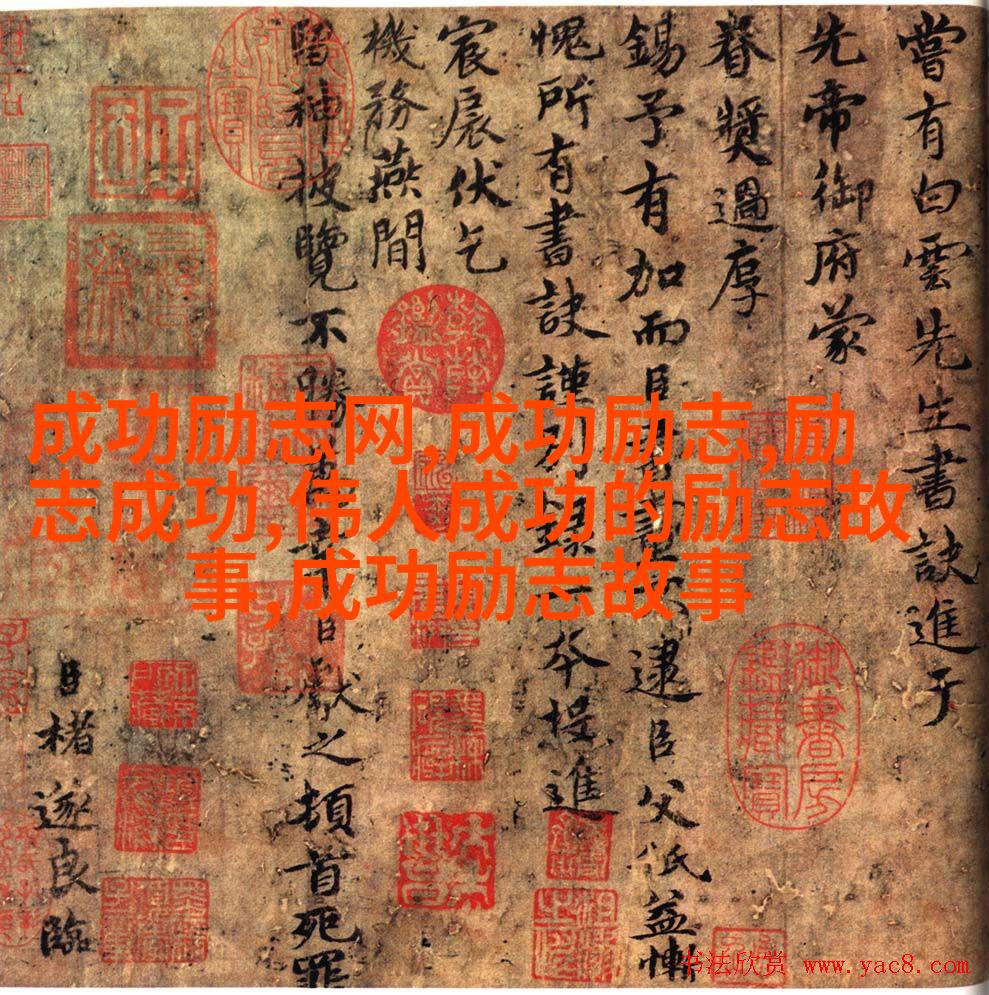 嘗有白雲先生書訣進于
先帝御府蒙
眷奬過厚
錫予有加而臣不逮臣父祇益慚
愧所有書訣謹別録一本投進
宸扆伏乞
機務燕間
留神披覽不勝臣獻之頓首死罪
臣褚遂良臨
御書房鑑藏寶
乾隆鑑賞
成功励志网,成功励志,励
志成功,伟人成功的励志故
事,成功励志故事
书法欣赏 www.yac8.com